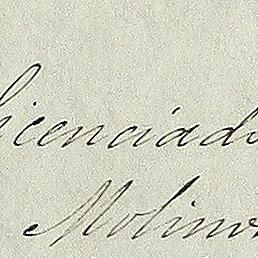 licenciado
Molino